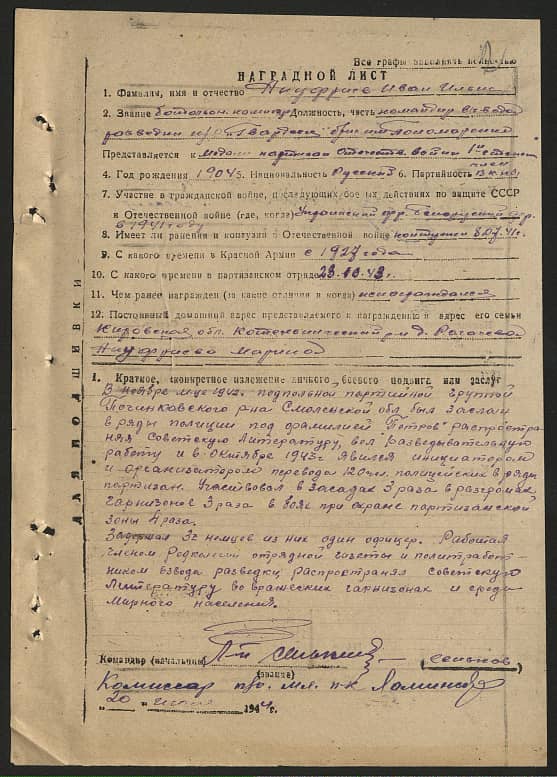 Все графы заполнять полностью
НАГРАДНОЙ ЛИСТ
1. Фамилия, имя и отчество Ануфриев Иван Ильич
2. Звание батальон. комиссар Должность, часть командир взвода
разведки
Представляется к медали партизан Отечеств. войны 1й степени
4. Год рождения 1904 5. Национальность Русский 6. Партийность член ВКП(б)
7. Участие в гражданской войне, последующих боевых действиях по защите СССР
и Отечественной войне (где, когда) Украинский фр. Белорусский фр.
в 1941 году
8. Имеет ли ранения и контузии в Отечественной войне контужен 8.07.41г.
9. С какого времени в Красной Армии с 1927 года
10. С какого времени в партизанском отряде 23.10.43г.
11. Чем ранее награжден (за какие отличия и когда) не награждался
12. Постоянный домашний адрес представляемого к награждению и адрес его семьи
Кировская обл. Котельнический р-н д. Рогачево
Ануфриева Мария
1. Краткое, конкретное изложение личного боевого подвига или заслуг
В ноябре м-це 1942г. подпольной партийной группой
Починковского р-на Смоленской обл. был заслан
в ряды полиции под фамилией "Петров" распростра-
няя Советскую Литературу, вел разведывательную
работу и в Октябре 1943г. явился инициатором
и организатором перевода 120 чел. полицейских в ряды
партизан. Участвовал в засадах 3 раза в разгромах
гарнизонов 3 раза в боях при охране партизанской
зоны 4 раза.
Задержал 3х немцев из них один офицер. Работая
членом Редколлегии отрядной газеты и политработ-
ником взвода разведки, распространял советскую
Литературу во вражеских гарнизонах и среди
мирного населения.
Командир (начальник) (Сеньков)
(звание)
Комиссар
"20" июля 1944г.
ДЛЯ ПОДШИВКИ